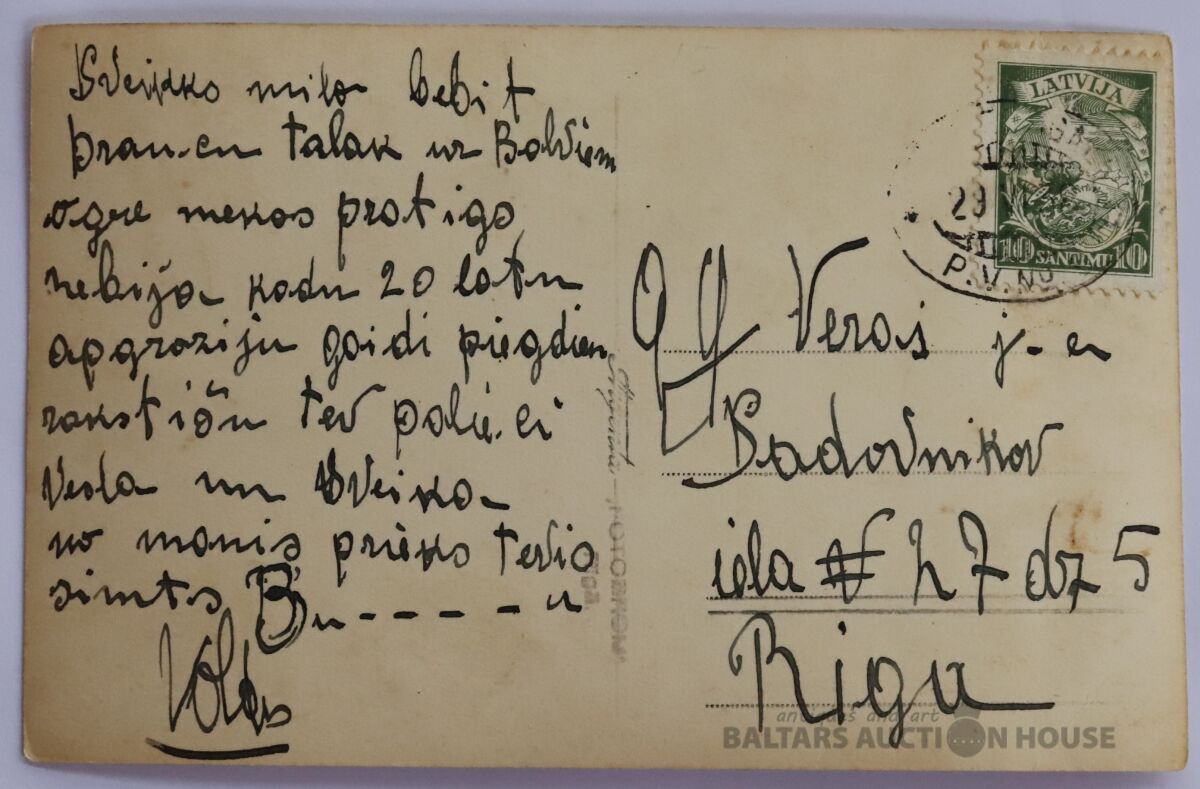 Sveikko milo bebit
brau.cu talak uz Balviem
ogre nekas protigo
nebija kadu 20 latu
apgroziju gaidi piegdien
rakstišu tev paliec
Vesla un Sveika
no manis prieko tevis
simts B u - - - - - u
LATVIJA
10 SANTIMU 10
29
P.V. No
Veras j-a
Sadovnikov
iela № 27 dz 5
Riga
antiques and art
BALTARS AUCTION HOUSE